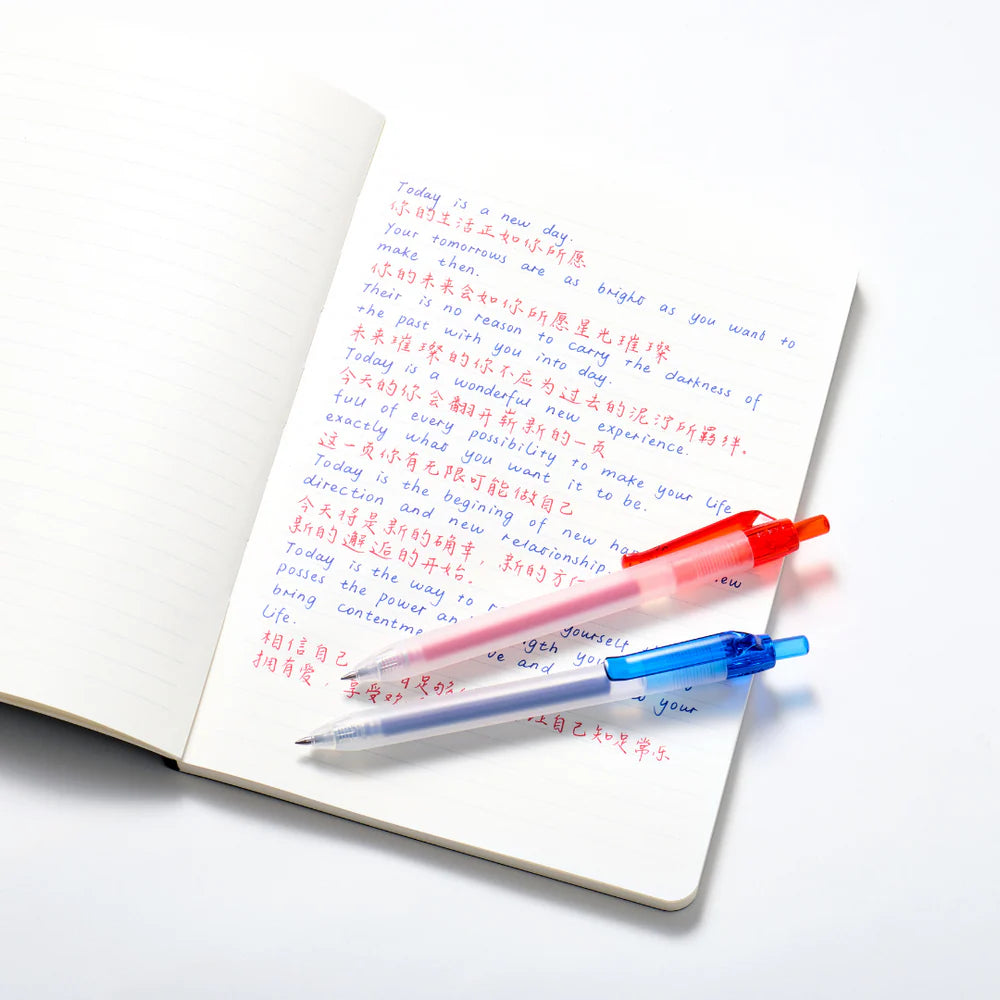 Today is a new day.
你的生活正如你所愿
Your tomorrows are as bright as you want to
make then.
你的未来会如你所愿星光璀璨
Their is no reason to carry the darkness of
the past with you into day.
未来璀璨的你不应为过去的泥泞所羁绊.
Today is a wonderful new experience.
今天的你会翻开崭新的一页
full of every possibility to make your life
exactly what you want it to be.
这一页你有无限可能做自己
Today is the begining of new
direction and new relationship.
今天将是新的确幸，新的方
新的邂逅的开始.
Today is the way to yourself
posses the power
bring and your
life.
相信自己
拥有爱，享受 自己知足常乐